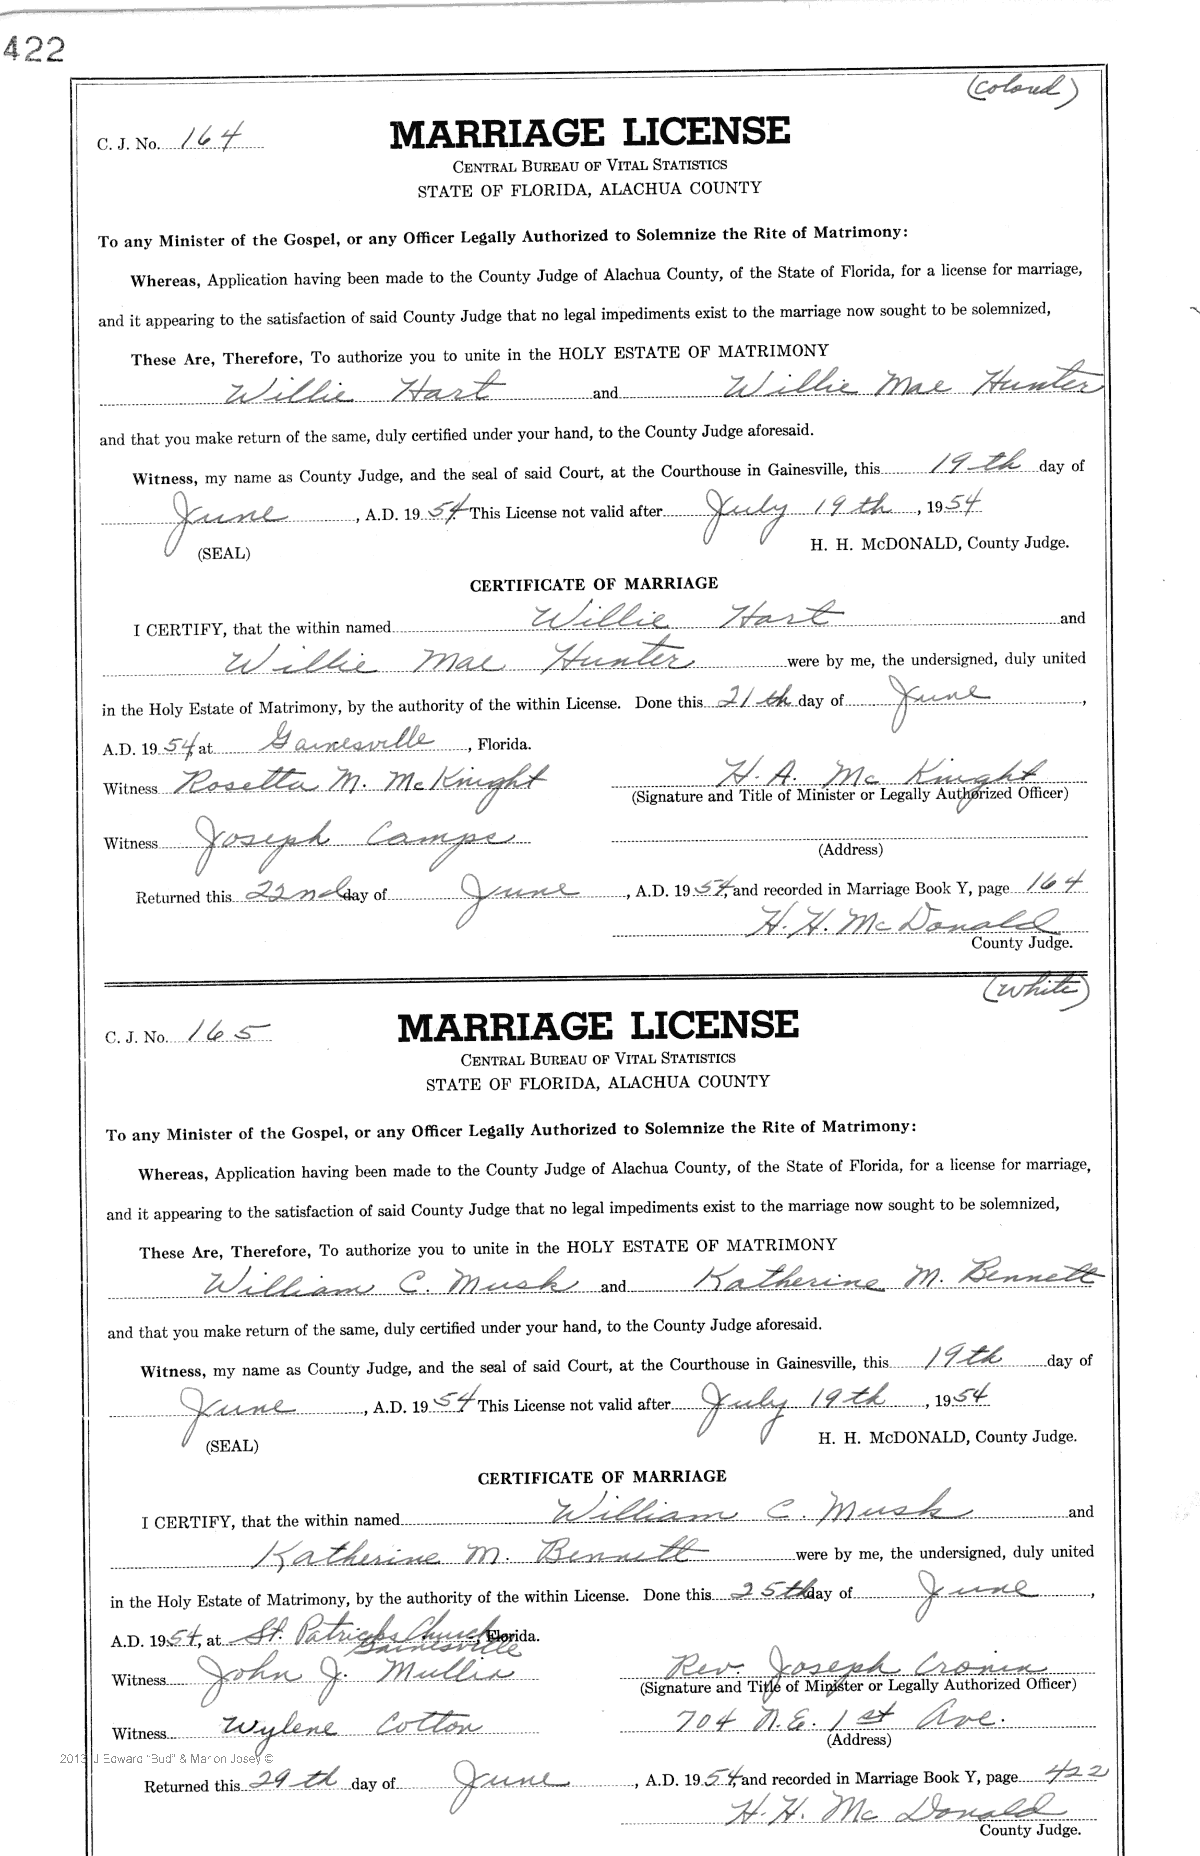 422
(colored)
C. J. No. 164
MARRIAGE LICENSE
CENTRAL BUREAU OF VITAL STATISTICS
STATE OF FLORIDA, ALACHUA COUNTY
To any Minister of the Gospel, or any Officer Legally Authorized to Solemnize the Rite of Matrimony:
Whereas, Application having been made to the County Judge of Alachua County, of the State of Florida, for a license for marriage,
and it appearing to the satisfaction of said County Judge that no legal impediments exist to the marriage now sought to be solemnized,
These Are, Therefore, To authorize you to unite in the HOLY ESTATE OF MATRIMONY
Willie Hart and Willie Mae Hunter
and that you make return of the same, duly certified under your hand, to the County Judge aforesaid.
Witness, my name as County Judge, and the seal of said Court, at the Courthouse in Gainesville, this 19th day of
June, A.D. 1954 This License not valid after July 19th, 1954
(SEAL) H. H. McDONALD, County Judge.
CERTIFICATE OF MARRIAGE
I CERTIFY, that the within named Willie Hart and
Willie Mae Hunter were by me, the undersigned, duly united
in the Holy Estate of Matrimony, by the authority of the within License. Done this 21th day of June,
A.D. 1954, at Gainesville, Florida.
Witness Rosetta M. McKnight H. A. McKnight
(Signature and Title of Minister or Legally Authorized Officer)
Witness Joseph Camps
(Address)
Returned this 22nd day of June, A.D. 1954, and recorded in Marriage Book Y, page 164
H. H. McDonald
County Judge.
(white)
C. J. No. 165
MARRIAGE LICENSE
CENTRAL BUREAU OF VITAL STATISTICS
STATE OF FLORIDA, ALACHUA COUNTY
To any Minister of the Gospel, or any Officer Legally Authorized to Solemnize the Rite of Matrimony:
Whereas, Application having been made to the County Judge of Alachua County, of the State of Florida, for a license for marriage,
and it appearing to the satisfaction of said County Judge that no legal impediments exist to the marriage now sought to be solemnized,
These Are, Therefore, To authorize you to unite in the HOLY ESTATE OF MATRIMONY
William C. Musk and Katherine M. Bennett
and that you make return of the same, duly certified under your hand, to the County Judge aforesaid.
Witness, my name as County Judge, and the seal of said Court, at the Courthouse in Gainesville, this 19th day of
June, A.D. 1954 This License not valid after July 19th, 1954
(SEAL) H. H. McDONALD, County Judge.
CERTIFICATE OF MARRIAGE
I CERTIFY, that the within named William C. Musk and
Katherine M. Bennett were by me, the undersigned, duly united
in the Holy Estate of Matrimony, by the authority of the within License. Done this 25th day of June,
A.D. 1954, at St. Patricks Church, Florida.
Gainesville
Witness John J. Mullin Rev. Joseph Cronin
(Signature and Title of Minister or Legally Authorized Officer)
Witness Wylene Cotton 704 N.E. 1st Ave.
(Address)
2013 J Edward "Bud" & Marion Josey ©
Returned this 29th day of June, A.D. 1954, and recorded in Marriage Book Y, page 422
H. H. McDonald
County Judge.